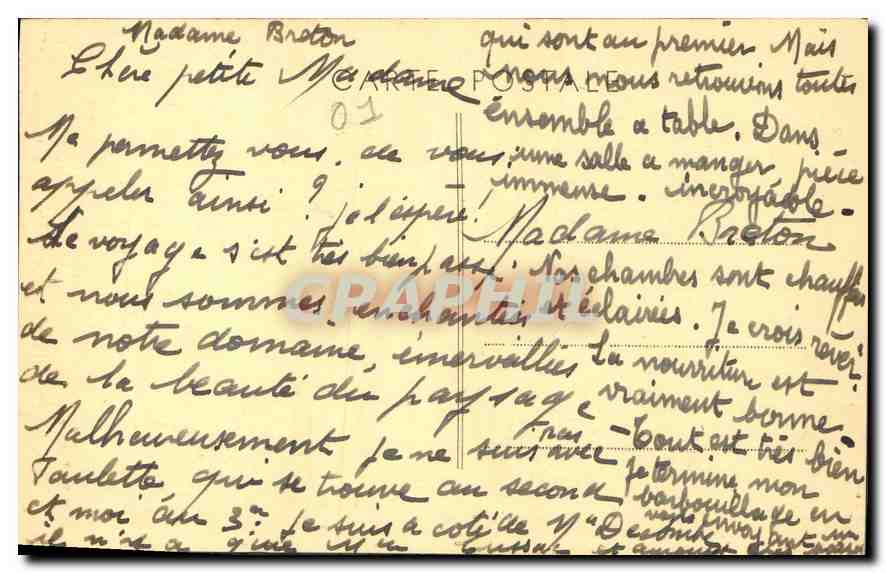 Madame Breton
CARTE POSTALE
01
Chère petite Madame
Me permettez vous, de vous
appeler ainsi ? je l'espère !
Le voyage s'est très bien passé
et nous sommes enchantées
de notre domaine, émerveillées
de la beauté du paysage
Malheureusement je ne suis pas avec
Paulette qui se trouve au second
et moi au 3me je suis a coté de Me
il n'y a qu'une
qui sont au premier Mais
nous nous retrouvons toutes
ensemble a table. Dans
une salle a manger, pièce
immense. incroyable -
Madame Breton
Nos chambres sont chauffées
et éclairées. Je crois rêver.
La nourriture est
vraiment bonne
- Tout est très bien
je termine mon
barbouillage en
vous envoyant
GRAPHIL